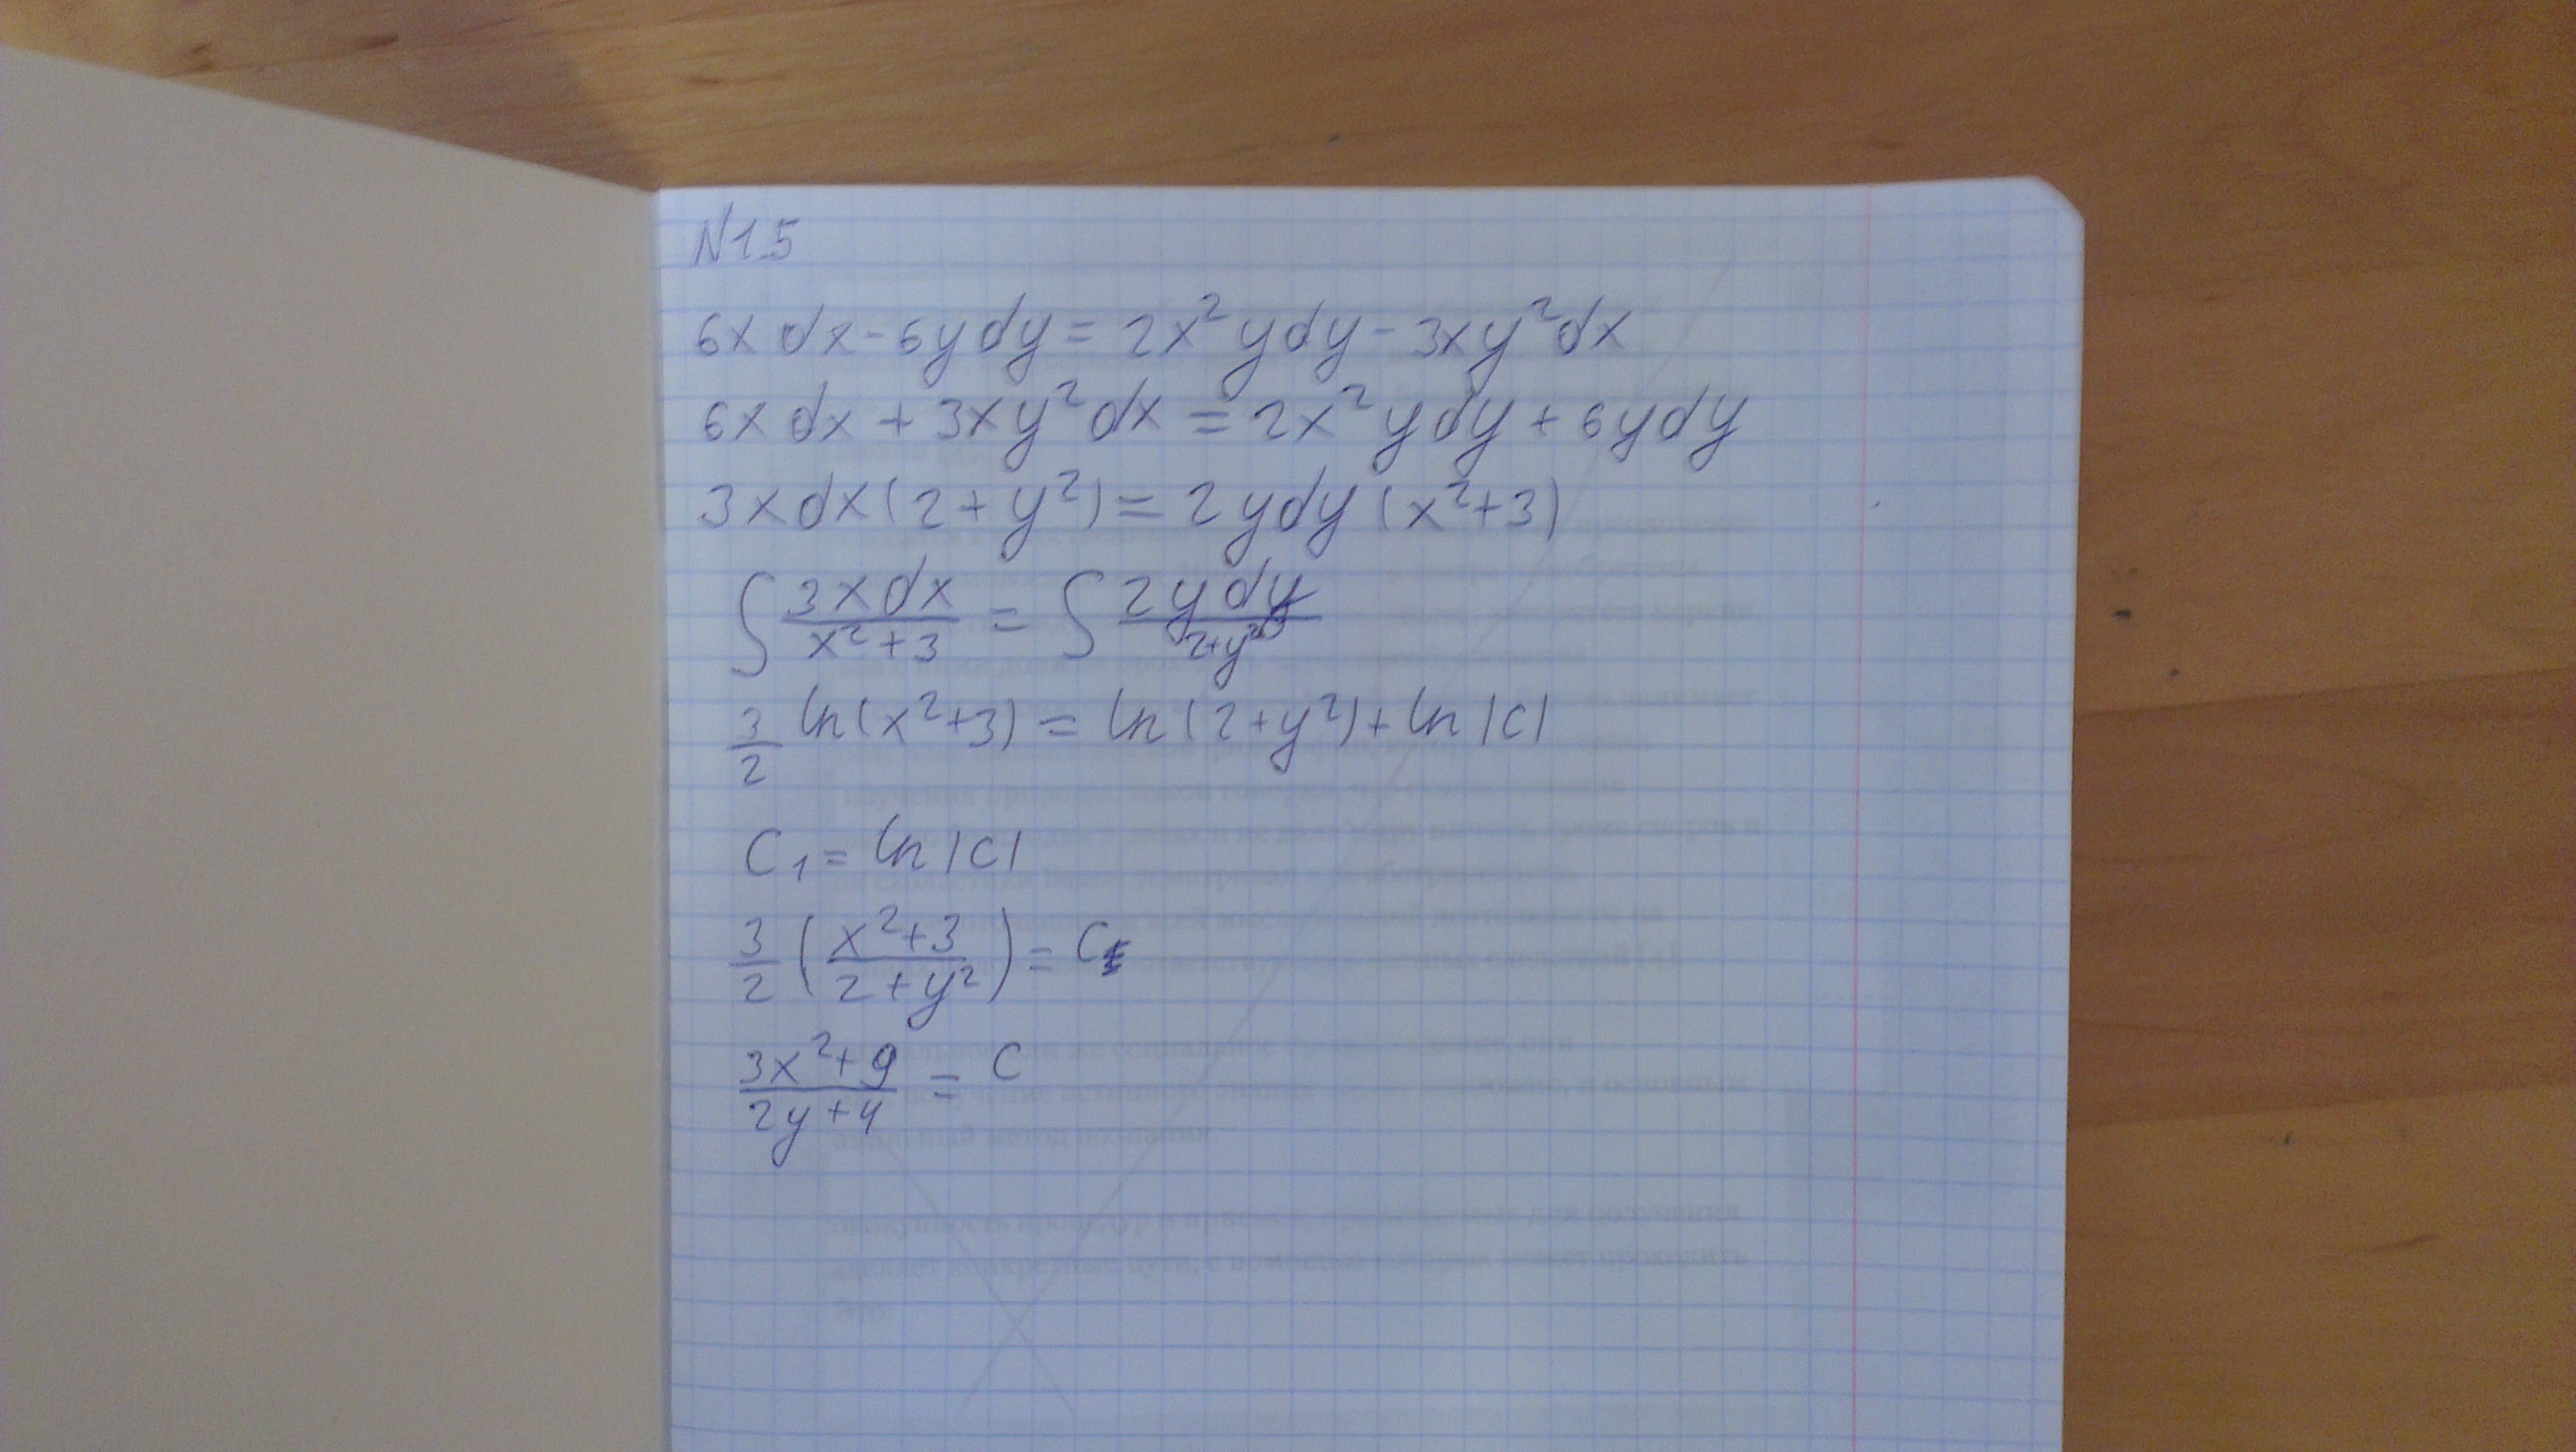 N1.5
6x dx - 6y dy = 2x²y dy - 3xy² dx
6x dx + 3xy² dx = 2x²y dy + 6y dy
3x dx (2 + y²) = 2y dy (x² + 3)
∫ 3x dx / (x² + 3) = ∫ 2y dy / (2 + y²)
3/2 ln(x² + 3) = ln(2 + y²) + ln|C|
C₁ = ln|C|
3/2 ((x² + 3) / (2 + y²)) = C
(3x² + 9) / (2y + 4) = C